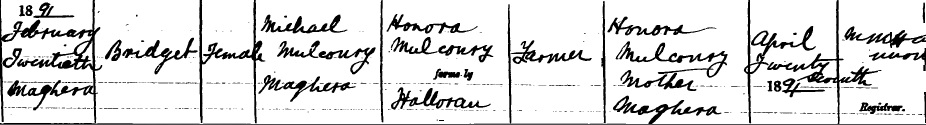 1891
February
Twentieth
Maghera
Bridget
Female
Michael
Mulconry
Maghera
Honora
Mulconry
formerly
Halloran
Farmer
Honora
Mulconry
Mother
Maghera
April
Twenty
Seventh
1891
Registrar.